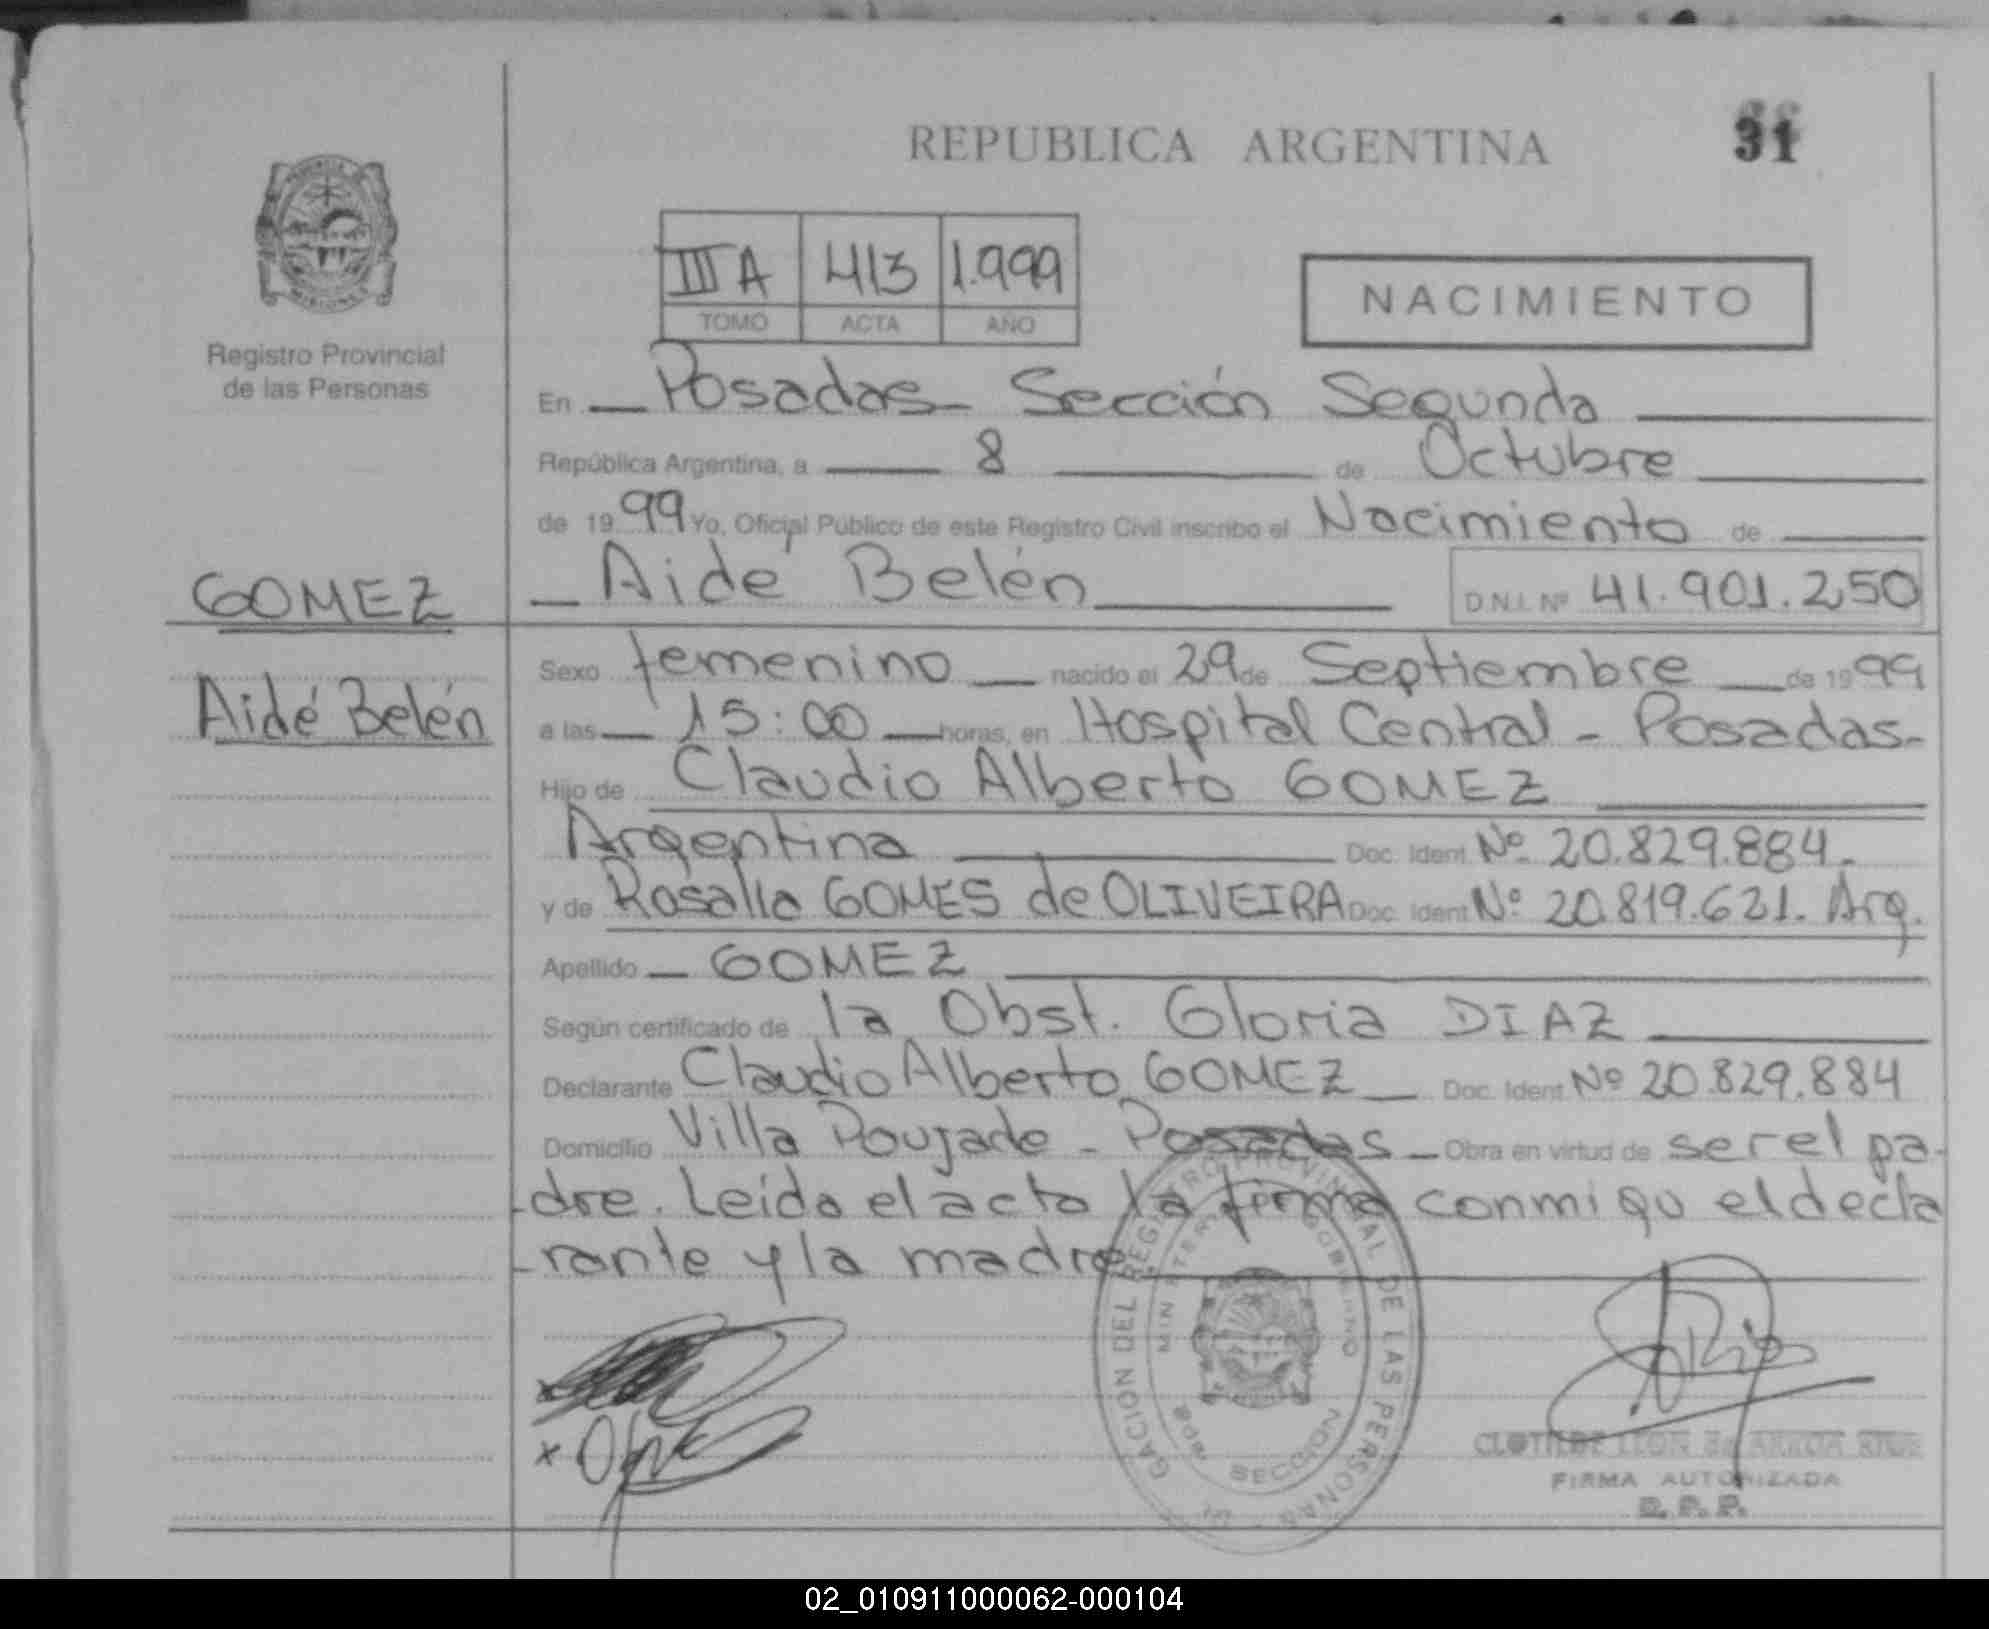 REPUBLICA ARGENTINA
31
PROVINCIA DE MISIONES
Registro Provincial
de las Personas
III A 413 1.999
TOMO ACTA AÑO
NACIMIENTO
En Posadas - Sección Segunda
República Argentina, a 8 de Octubre
de 1999 Yo, Oficial Público de este Registro Civil inscribo el Nacimiento de
Aidé Belén D.N.I. Nº 41.901.250
GOMEZ
Aidé Belén
Sexo femenino nacido el 29 de Septiembre de 1999
a las 15:00 horas, en Hospital Central - Posadas-
Hijo de Claudio Alberto GOMEZ
Argentina Doc. Ident. Nº 20.829.884.
y de Rosalia GOMES de OLIVEIRA Doc. Ident. Nº 20.819.621. Arg.
Apellido GOMEZ
Según certificado de la Obst. Gloria DIAZ
Declarante Claudio Alberto GOMEZ Doc. Ident. Nº 20.829.884
Domicilio Villa Poujade - Posadas Obra en virtud de ser el pa-
dre. Leída el acta la firma conmigo el decla
rante y la madre
REGISTRO PROVINCIAL DE LAS PERSONAS
SECCION
FIRMA AUTORIZADA
R. P. P.
02_010911000062-000104